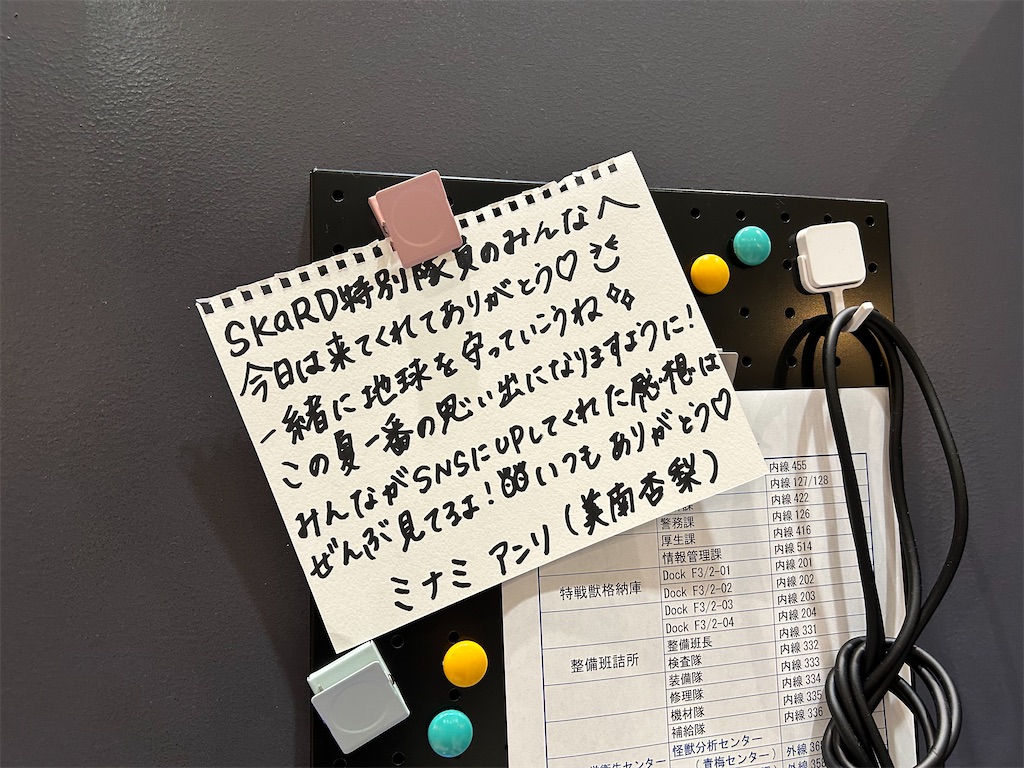 SKaRD特別隊員のみんなへ
今日は来てくれてありがとう♡
一緒に地球を守っていこうね
この夏一番の思い出になりますように!
みんながSNSにUPしてくれた感想は
ぜんぶ見てるよ!いつもありがとう♡
ミナミ アンリ(美南杏梨)
内線 455
内線 127/128
内線 422
警務課 内線 126
厚生課 内線 416
情報管理課 内線 514
特戦獣格納庫
Dock F3/2-01 内線 201
Dock F3/2-02 内線 202
Dock F3/2-03 内線 203
Dock F3/2-04 内線 204
整備班詰所
整備班長 内線 331
検査隊 内線 332
装備隊 内線 333
修理隊 内線 334
機材隊 内線 335
補給隊 内線 336
怪獣分析センター 外線
(青梅センター) 外線